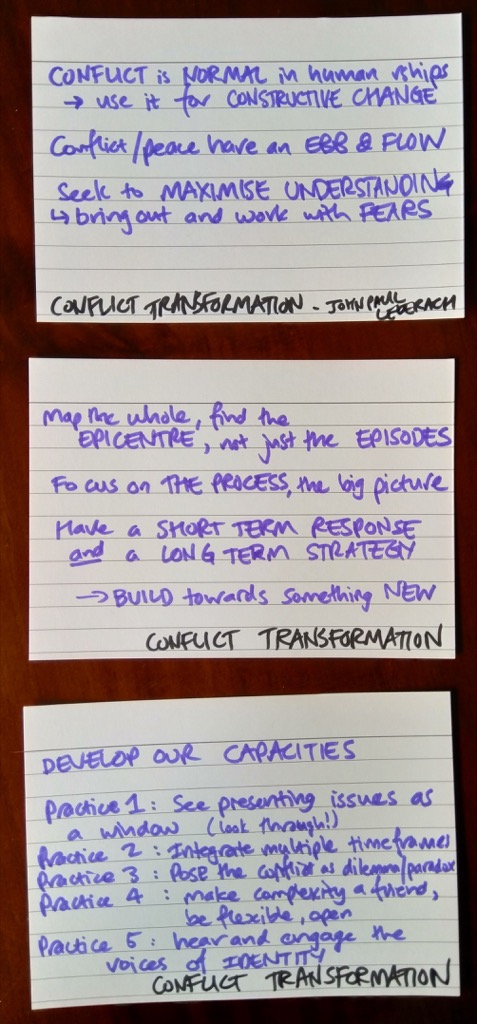 CONFLICT is NORMAL in human r/ships
→ use it for CONSTRUCTIVE CHANGE
Conflict/peace have an EBB & FLOW
Seek to MAXIMISE UNDERSTANDING
↳ bring out and work with FEARS
CONFLICT TRANSFORMATION - JOHN PAUL
LEDERACH
Map the whole, find the
EPICENTRE, not just the EPISODES
Focus on THE PROCESS, the big picture
Have a SHORT TERM RESPONSE
and a LONG TERM STRATEGY
→ BUILD towards something NEW
CONFLICT TRANSFORMATION
DEVELOP OUR CAPACITIES
Practice 1: See presenting issues as
a window (look through!)
Practice 2: Integrate multiple timeframes
Practice 3: Pose the conflict as dilemma/paradox
Practice 4: make complexity a friend,
be flexible, open
Practice 5: hear and engage the
voices of IDENTITY
CONFLICT TRANSFORMATION